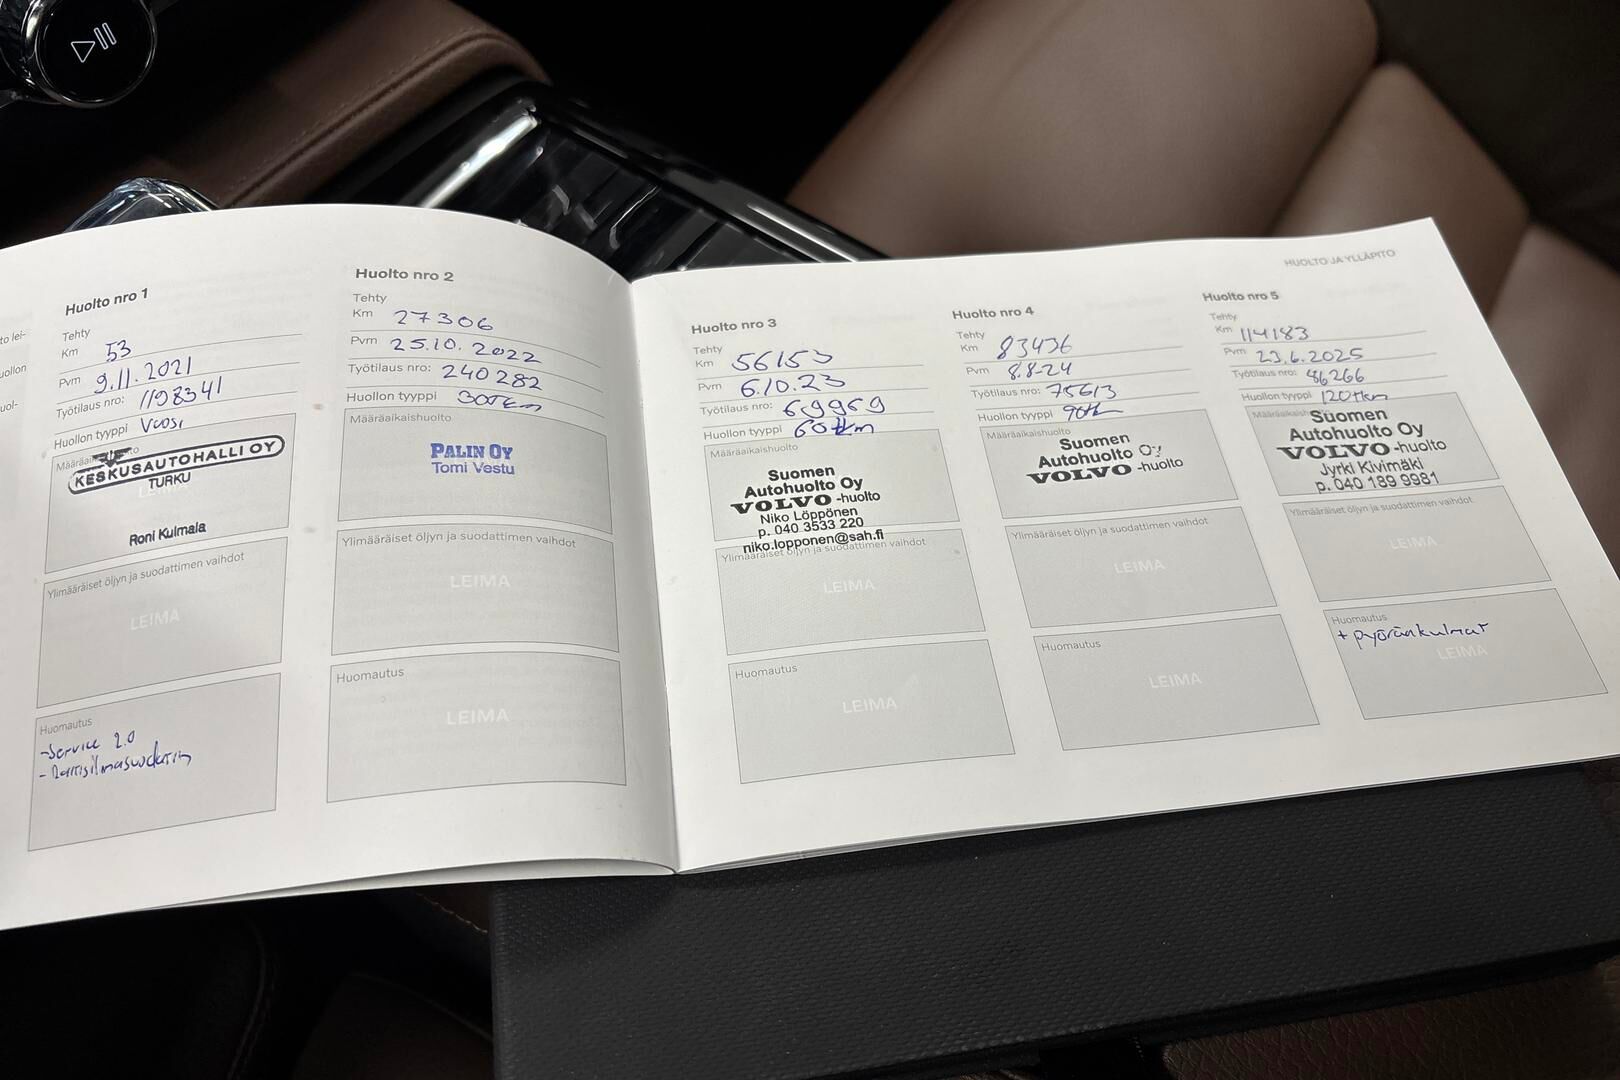 to lei-
uollon
uol-
Huolto nro 1
Tehty
Km 53
Pvm 9.11.2021
Työtilaus nro: 1198341
Huollon tyyppi Vuosi
Määräaikaishuolto
KESKUSAUTOHALLI OY
TURKU
Roni Kulmala
Ylimääräiset öljyn ja suodattimen vaihdot
LEIMA
Huomautus
-Service 2.0
- Raitisilmasuodatin
Huolto nro 2
Tehty
Km 27306
Pvm 25.10.2022
Työtilaus nro: 240282
Huollon tyyppi 30tkm
Määräaikaishuolto
PALIN OY
Tomi Vestu
Ylimääräiset öljyn ja suodattimen vaihdot
LEIMA
Huomautus
LEIMA
HUOLTO JA YLLÄPITO
Huolto nro 3
Tehty
Km 56153
Pvm 6.10.23
Työtilaus nro: 69969
Huollon tyyppi 60tkm
Määräaikaishuolto
Suomen
Autohuolto Oy
VOLVO -huolto
Niko Löppönen
p. 040 3533 220
niko.lopponen@sah.fi
Ylimääräiset öljyn ja suodattimen vaihdot
LEIMA
Huomautus
LEIMA
Huolto nro 4
Tehty
Km 83436
Pvm 8.8-24
Työtilaus nro: 75613
Huollon tyyppi
Määräaikaishuolto
Suomen
Autohuolto Oy
VOLVO -huolto
Ylimääräiset öljyn ja suodattimen vaihdot
LEIMA
Huomautus
LEIMA
Huolto nro 5
Tehty
Km 114183
Pvm 23.6.2025
Työtilaus nro: 86266
Huollon tyyppi 120tkm
Suomen
Autohuolto Oy
VOLVO -huolto
Jyrki Kivimäki
p. 040 189 9981
Ylimääräiset öljyn ja suodattimen vaihdot
LEIMA
Huomautus
+ pyöränkulmat
LEIMA